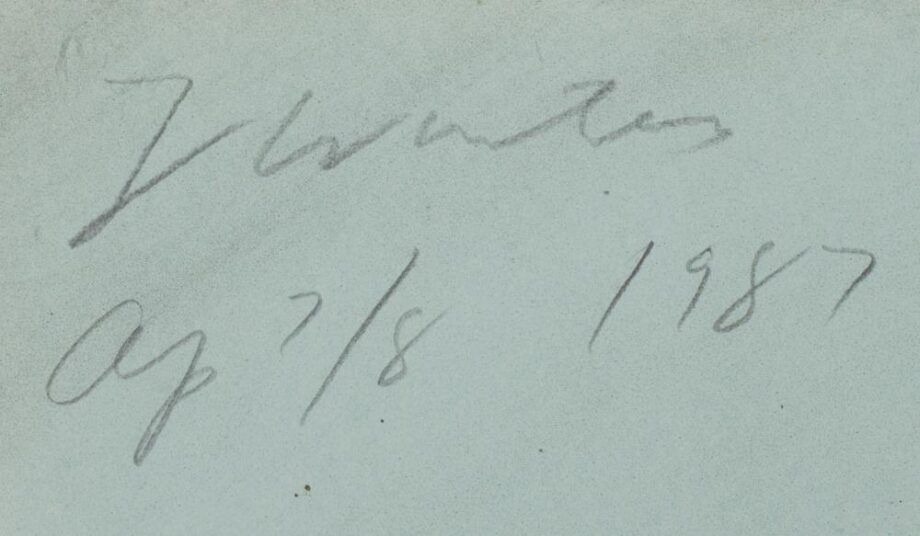 T Winters
ap 7/8 1987